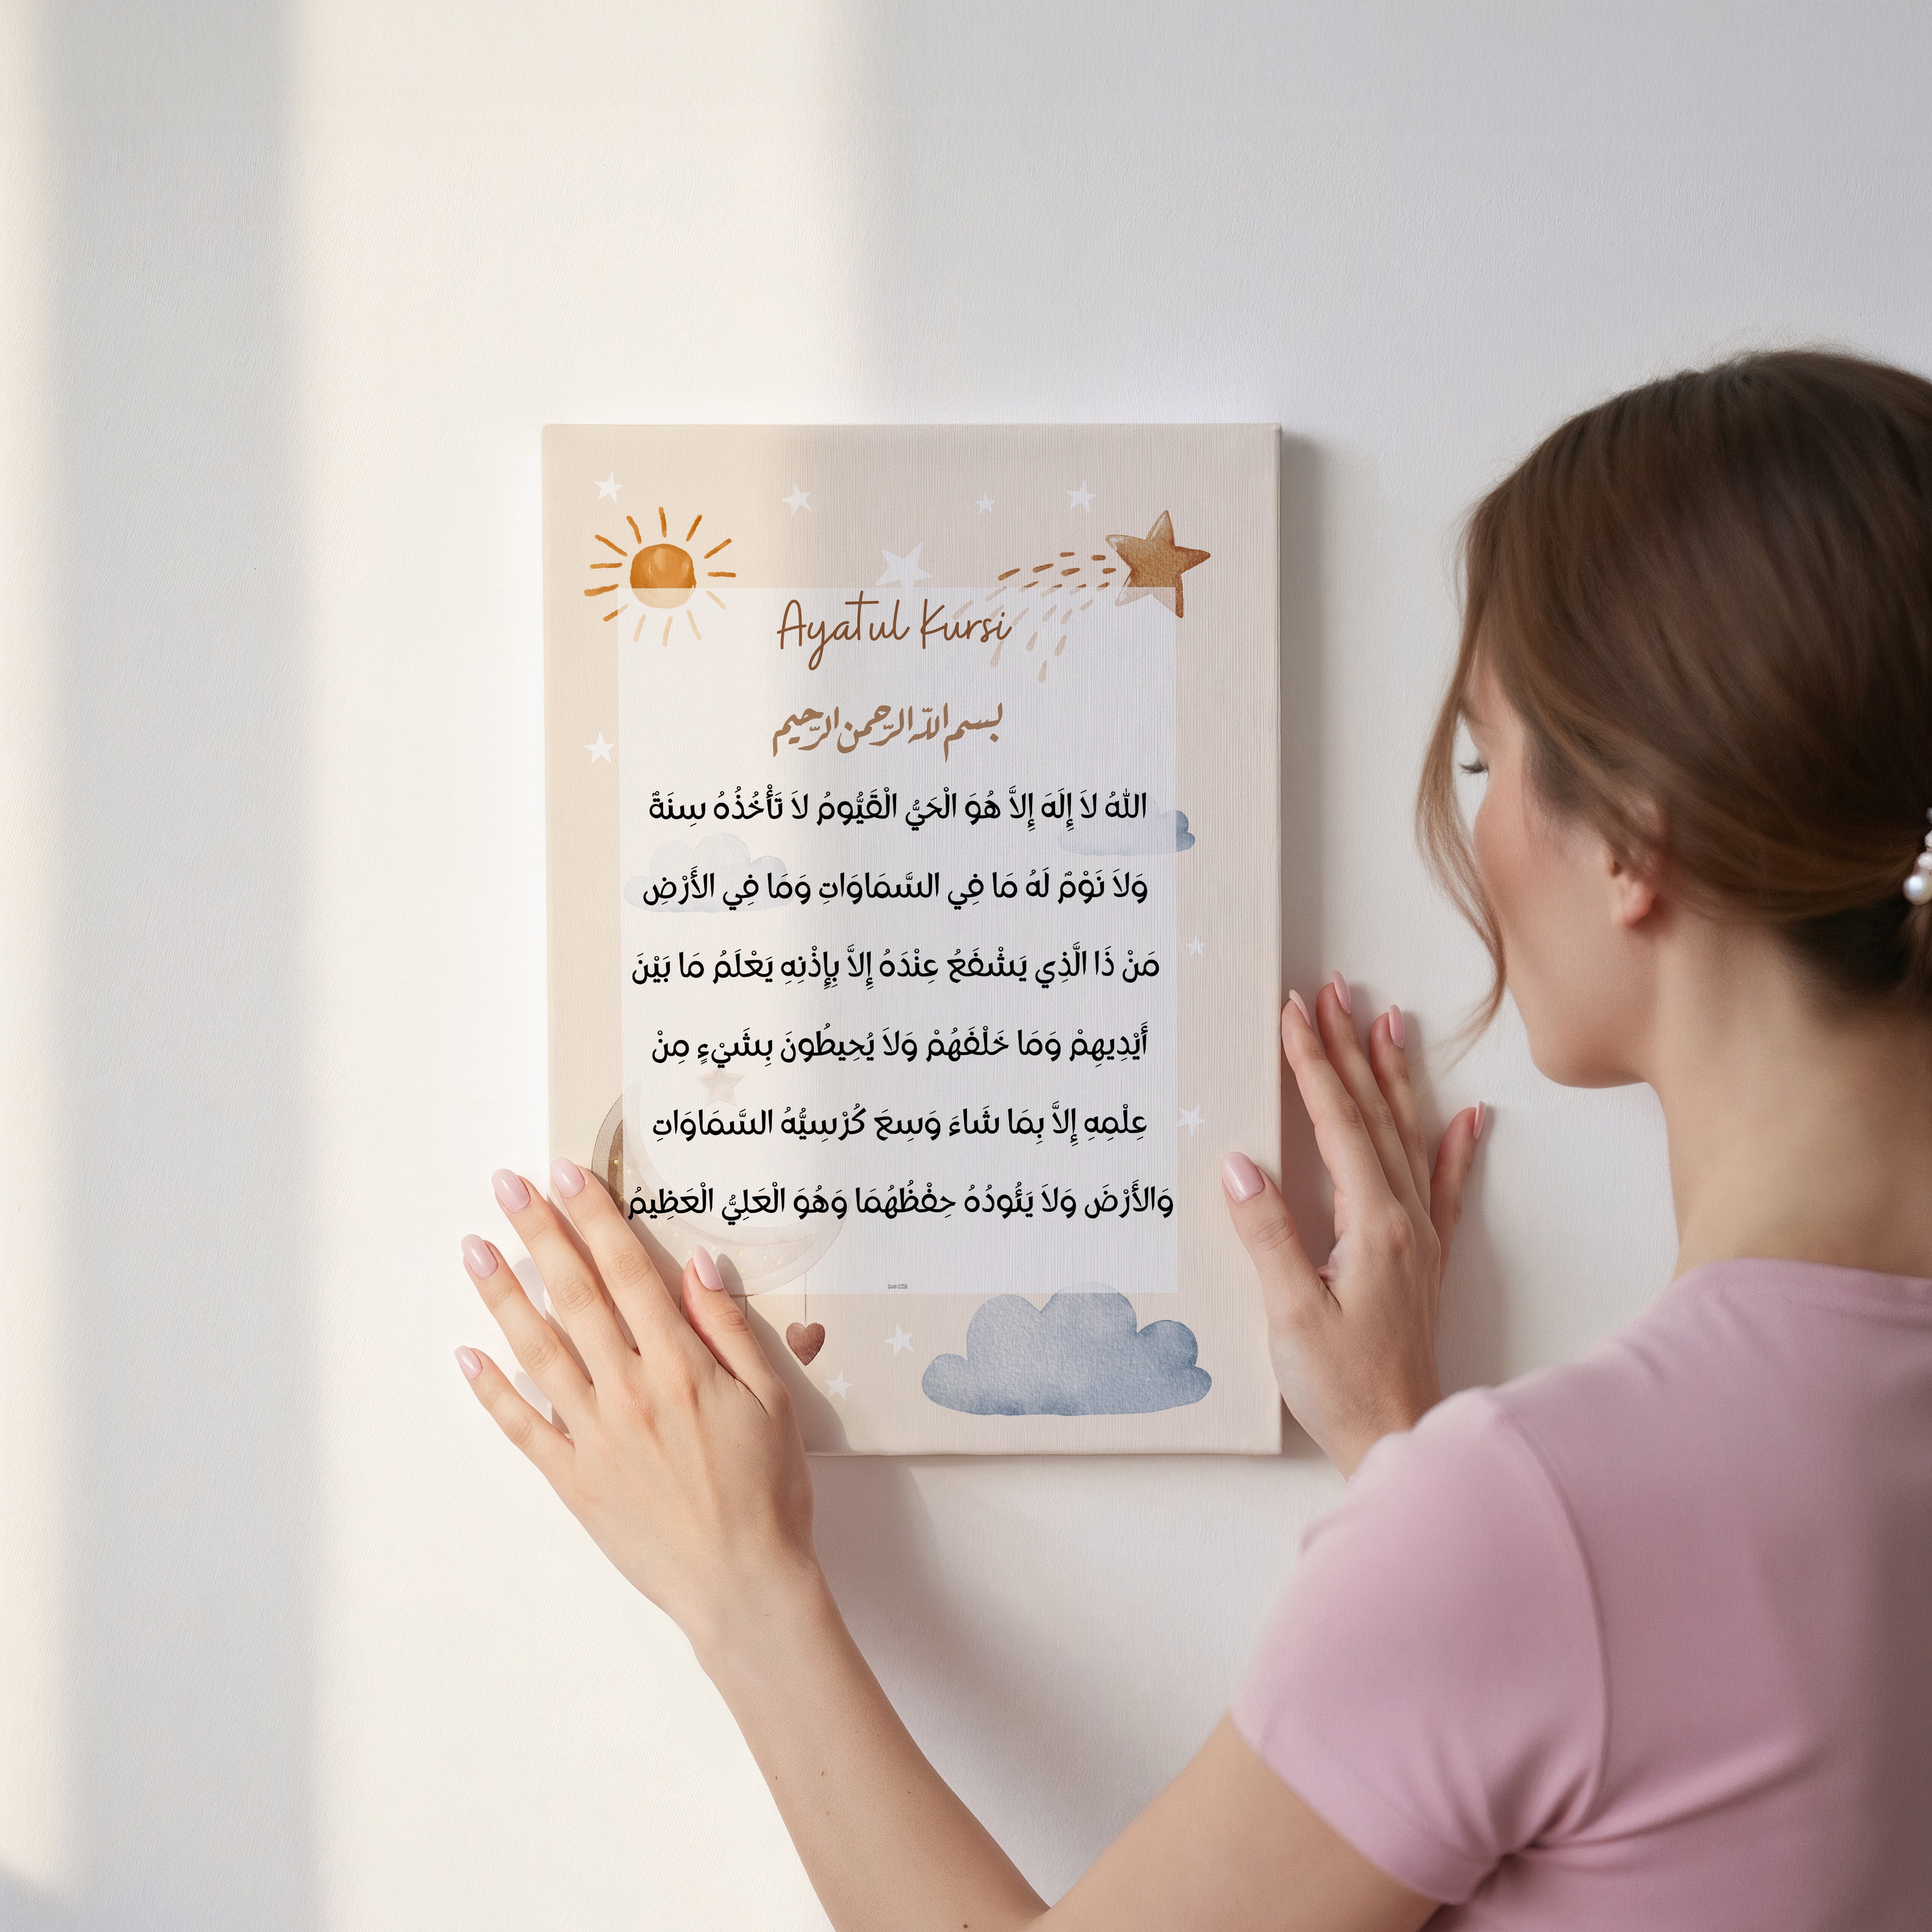 Ayatul Kursi
بسم اللّه الرّحمن الرّحيم
اللّٰهُ لاَ إِلَهَ إِلاَّ هُوَ الْحَيُّ الْقَيُّومُ لاَ تَأْخُذُهُ سِنَةٌ
وَلاَ نَوْمٌ لَهُ مَا فِي السَّمَاوَاتِ وَمَا فِي الأَرْضِ
مَنْ ذَا الَّذِي يَشْفَعُ عِنْدَهُ إِلاَّ بِإِذْنِهِ يَعْلَمُ مَا بَيْنَ
أَيْدِيهِمْ وَمَا خَلْفَهُمْ وَلاَ يُحِيطُونَ بِشَيْءٍ مِنْ
عِلْمِهِ إِلاَّ بِمَا شَاءَ وَسِعَ كُرْسِيُّهُ السَّمَاوَاتِ
وَالأَرْضَ وَلاَ يَئُودُهُ حِفْظُهُمَا وَهُوَ الْعَلِيُّ الْعَظِيمُ